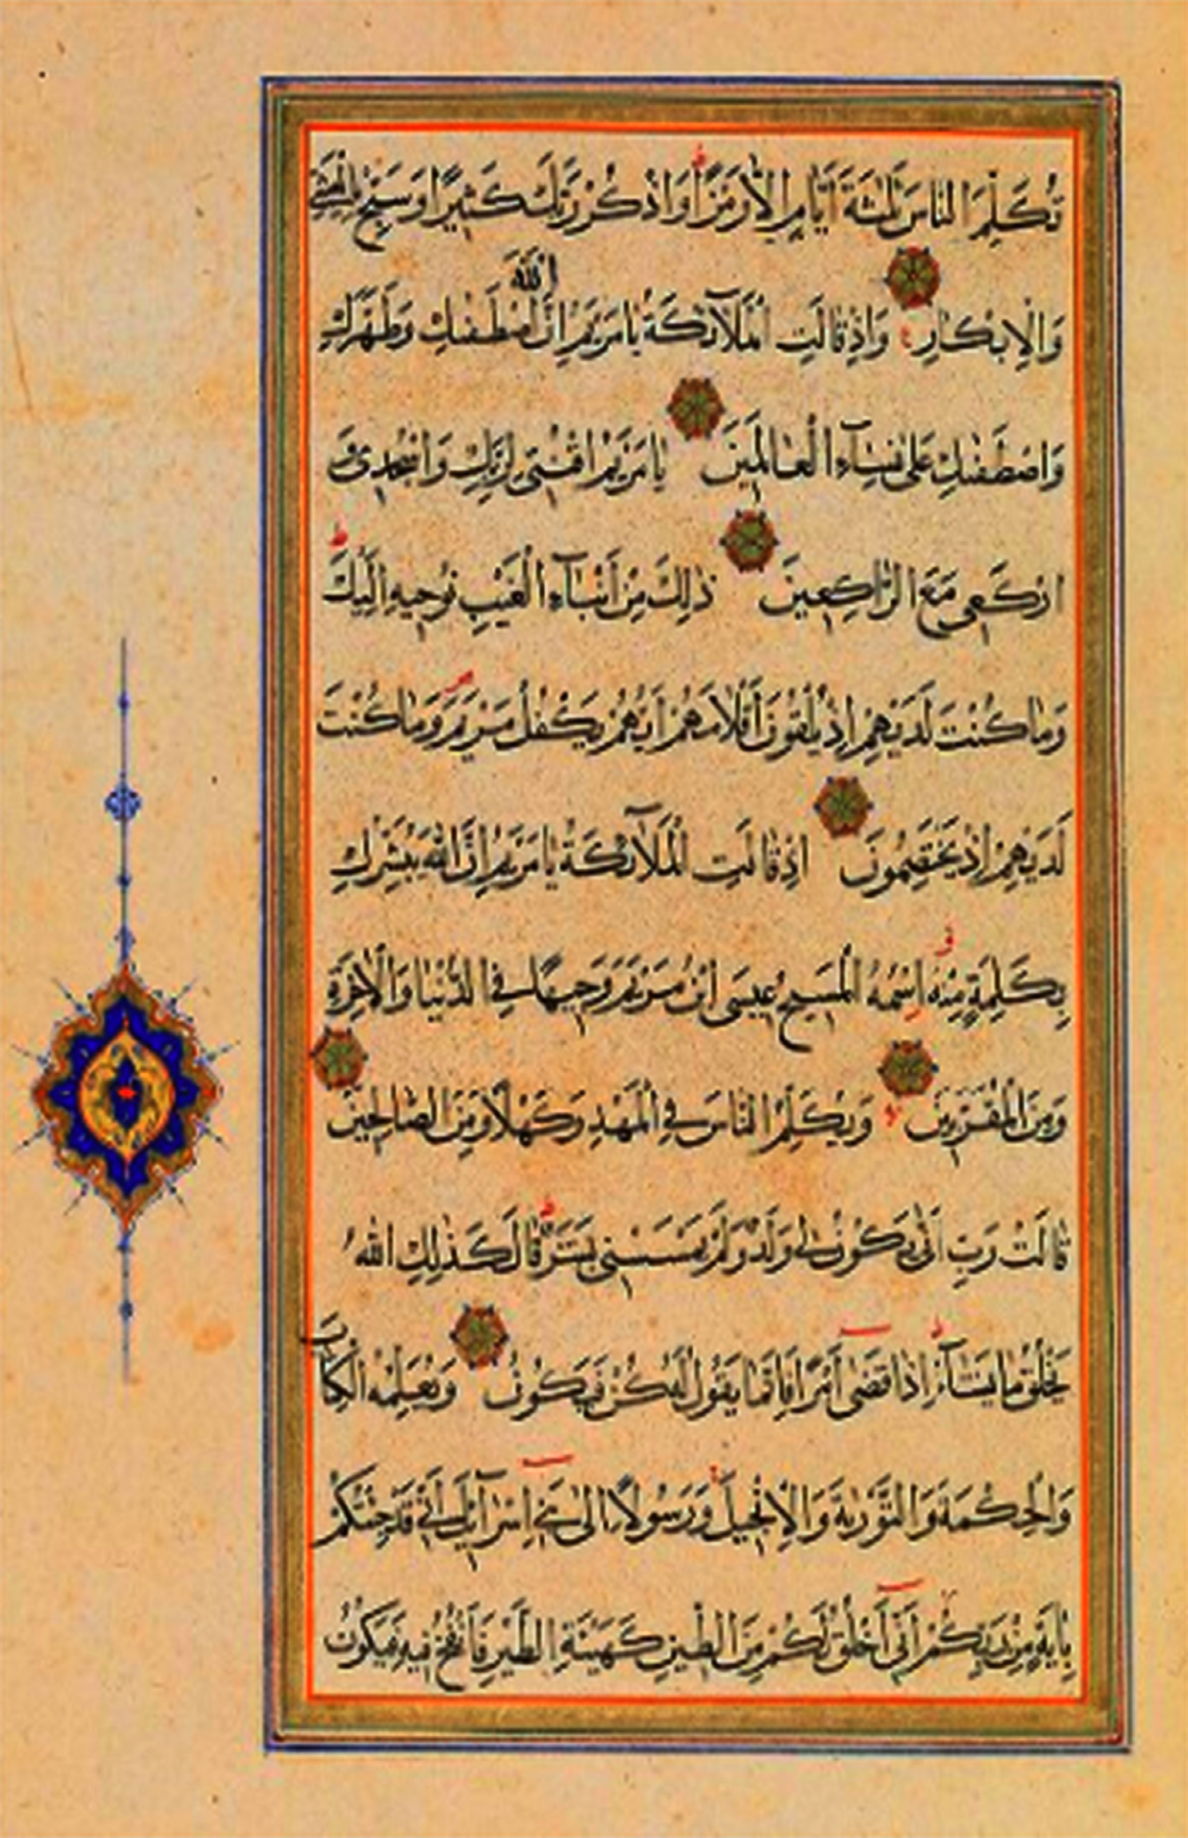 تُكَلِّمَ النَّاسَ ثَلٰثَةَ اَيَّامٍ اِلَّا رَمْزًا وَاذْكُرْ رَبَّكَ كَثِيرًا وَسَبِّحْ بِالْعَشِيِّ
وَالْاِبْكَارِ وَاِذْ قَالَتِ الْمَلَآئِكَةُ يَا مَرْيَمُ اِنَّ اللّٰهَ اصْطَفٰيكِ وَطَهَّرَكِ
وَاصْطَفٰيكِ عَلٰى نِسَآءِ الْعَالَمِينَ يَا مَرْيَمُ اقْنُتِى لِرَبِّكِ وَاسْجُدِى وَ
ارْكَعِى مَعَ الرَّاكِعِينَ ذٰلِكَ مِنْ اَنْبَآءِ الْغَيْبِ نُوحِيهِ اِلَيْكَ
وَمَا كُنْتَ لَدَيْهِمْ اِذْ يُلْقُونَ اَقْلَامَهُمْ اَيُّهُمْ يَكْفُلُ مَرْيَمَ وَمَا كُنْتَ
لَدَيْهِمْ اِذْ يَخْتَصِمُونَ اِذْ قَالَتِ الْمَلَآئِكَةُ يَا مَرْيَمُ اِنَّ اللّٰهَ يُبَشِّرُكِ
بِكَلِمَةٍ مِنْهُ اسْمُهُ الْمَسِيحُ عِيسَى ابْنُ مَرْيَمَ وَجِيهًا فِى الدُّنْيَا وَالْاٰخِرَةِ
وَمِنَ الْمُقَرَّبِينَ وَيُكَلِّمُ النَّاسَ فِى الْمَهْدِ وَكَهْلًا وَمِنَ الصَّالِحِينَ
قَالَتْ رَبِّ اَنّٰى يَكُونُ لِى وَلَدٌ وَلَمْ يَمْسَسْنِى بَشَرٌ قَالَ كَذٰلِكِ اللّٰهُ
يَخْلُقُ مَا يَشَآءُ اِذَا قَضٰى اَمْرًا فَاِنَّمَا يَقُولُ لَهُ كُنْ فَيَكُونُ وَيُعَلِّمُهُ الْكِتَابَ
وَالْحِكْمَةَ وَالتَّوْرٰيةَ وَالْاِنْجِيلَ وَرَسُولًا اِلٰى بَنِى اِسْرَآئِيلَ اَنِّى قَدْ جِئْتُكُمْ
بِاٰيَةٍ مِنْ رَبِّكُمْ اَنِّى اَخْلُقُ لَكُمْ مِنَ الطِّينِ كَهَيْئَةِ الطَّيْرِ فَاَنْفُخُ فِيهِ فَيَكُونُ